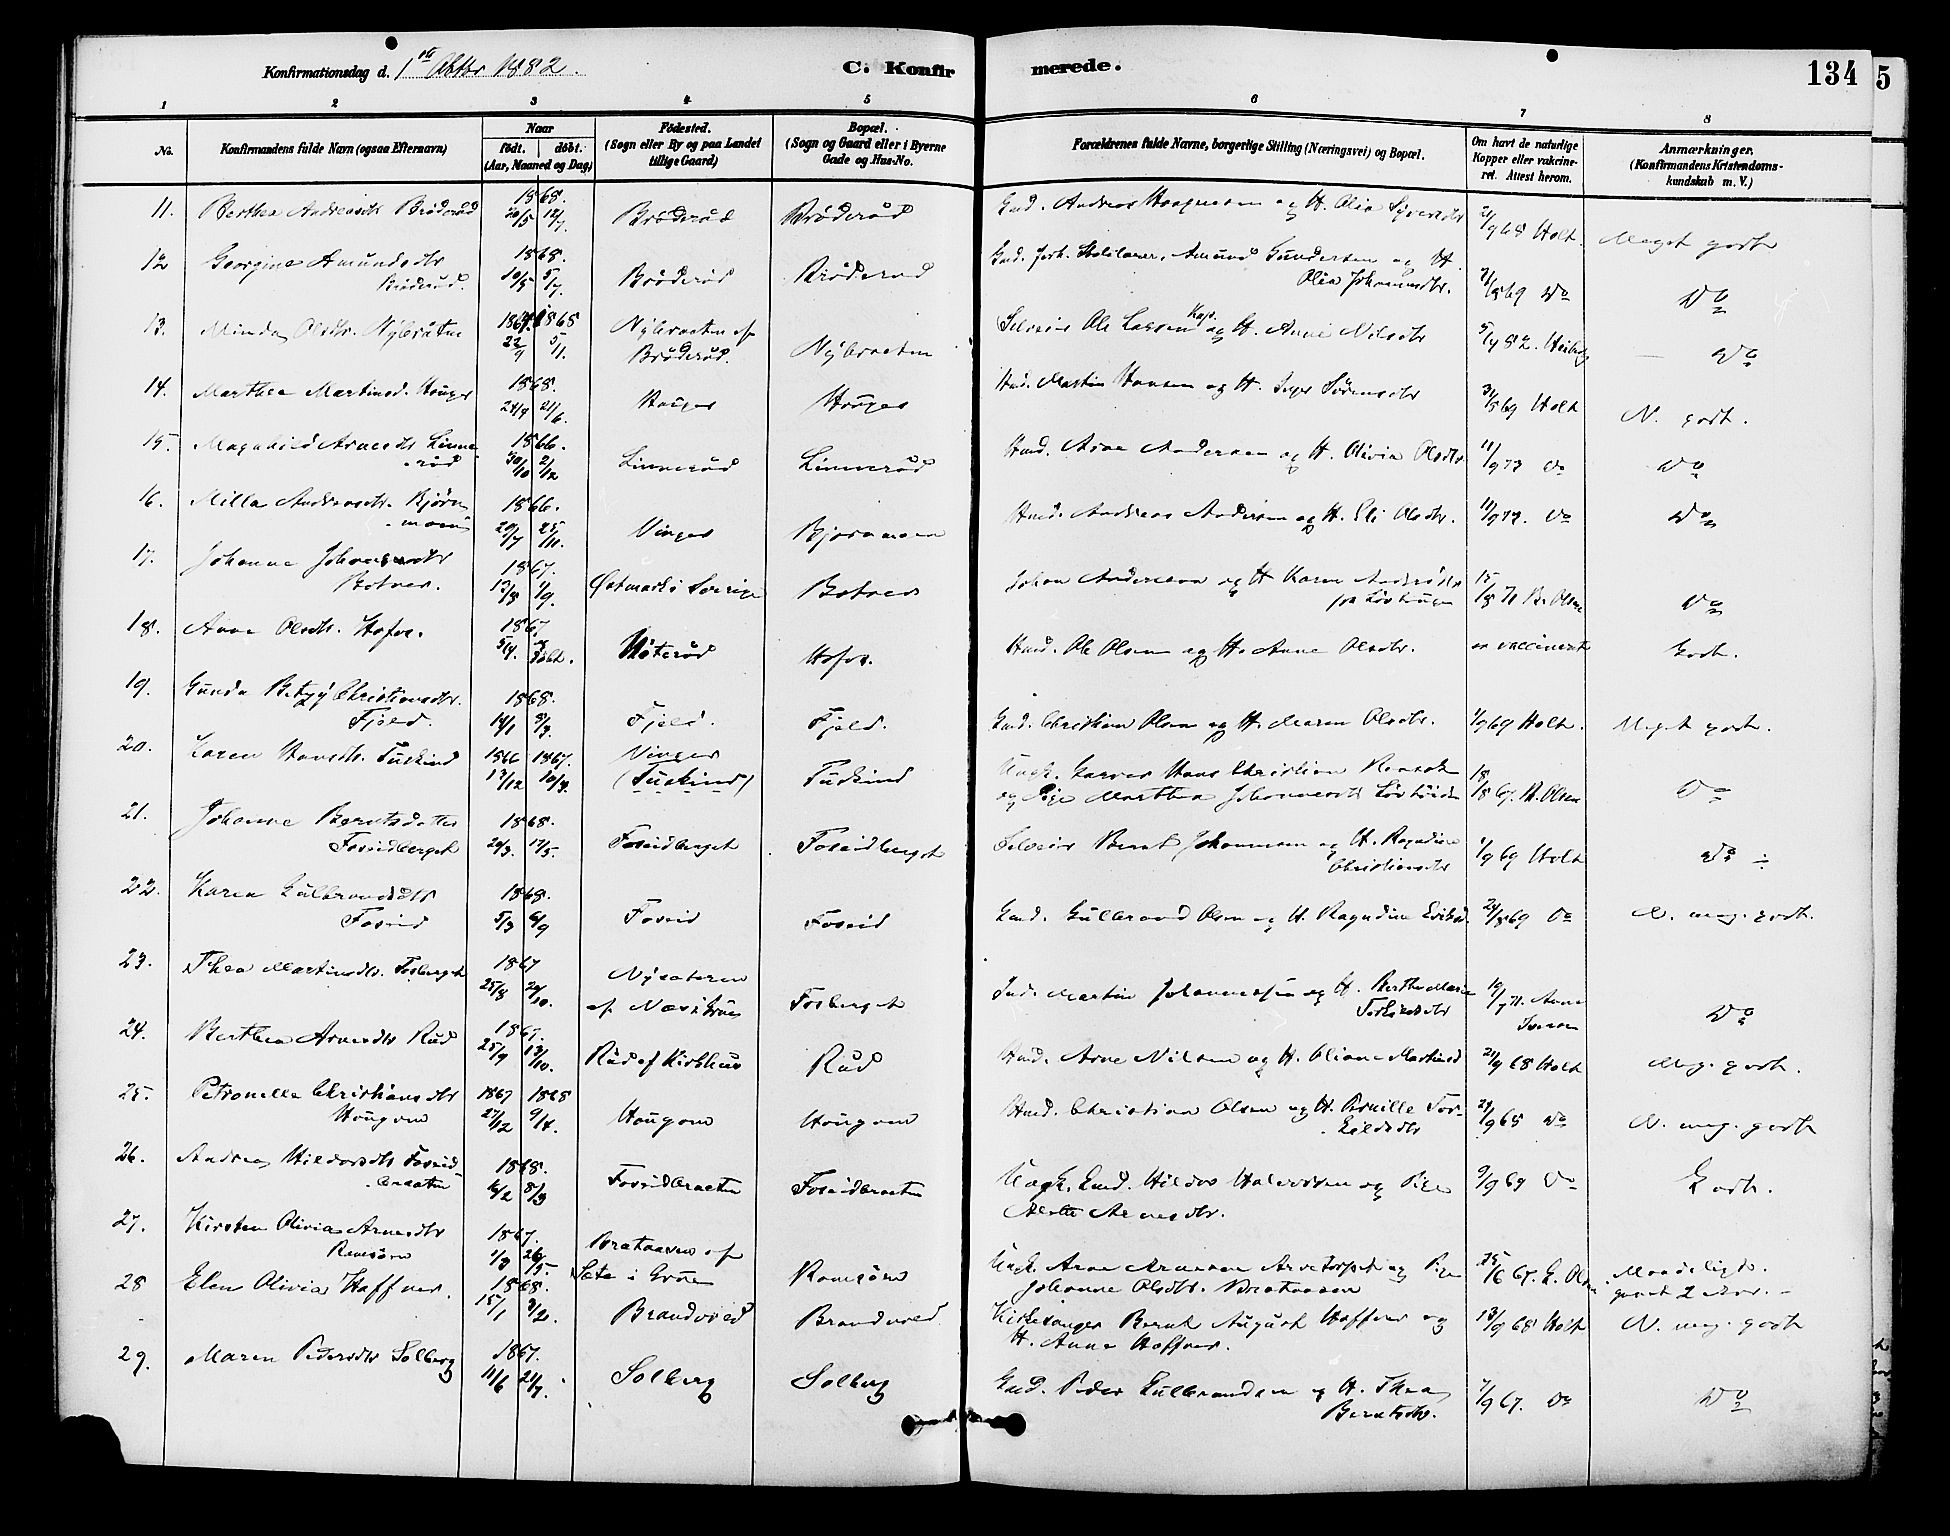 Konfirmationsdag d. 1ste Oktbr 1882.
C. Konfirmerede.
134
5
1 2 3 4 5 6 7 8
No.
Konfirmandens fulde Navn (ogsaa Efternavn)
Naar
födt. döbt.
(Aar, Maaned og Dag)
Födested.
(Sogn eller By og paa Landet
tillige Gaard)
Bopæl.
(Sogn og Gaard eller i Byerne
Gade og Hus-No.
Forældrenes fulde Navne, borgerlige Stilling (Næringsvei) og Bopæl.
Om havt de naturlige
Kopper eller vakcine-
ret. Attest herom.
Anmærkninger.
(Konfirmandens Kristendoms-
kundskab m. V.)
11. Berthea Andreasdtr Bröderöd 1868. 20/5 12/7. Bröderöd Bröderöd Gmd. Andreas Haagensen og H. Olia Syversdtr 21/9 68 Holt. Meget godt
12 Georgine Amundsdtr Bröderud. 1868. 10/5 5/7. Bröderöd Bröderud Gmd. Amund Gundersen og H. Olia Johannesdtr. 69 Do Do
13. Minda Olsdtr. Nÿbråten 1864 1865 22/9 5/1. Nÿbraaten af Bröderöd. Nÿbraaten Selveier Ole Larsen og H. Anne Nilsdtr 82. Do
14. Marthea Martinsd. Houger 1868. 24/4 21/6. Houger Houger Hmd. Martin Hansen og H. Inger Sörensdtr 69 Holt N. godt.
15. Magnhild Arnesdtr Linneröd 1866. 30/10 2/12 Linneröd Linneröd Hmd. Arne Andersen og H. Olivia Olsdtr 11/9 73 Do Do
16. Milla Andreasdtr. Björnmoen 1866. 20/7 25/11. Vinger Bjornmoen Hmd. Andreas Andersen og H. Eli Olsdtr. Do Do
17. Johanne Johansdtr Botner. 1867. 13/8 1/9. Östmark i Sverige Botner Johan Andersson og H Karen Andersdtr 15/8 71 Olsen Do
18. Anne Olsdtr. Hofos. 1867 5/4. döbt. Höteröd Hofos. Hmd. Ole Olsen og H. Anne Olsdtr. er vaccineret Godt.
19. Gunda Betzÿ Christiansdtr. Fjeld. 1868. 14/1 8/3. Fjeld. Fjeld. Gmd. Christian Olsen og H. Maren Olsdtr. 1/9 69 Holt. Meget godt.
20. Karen Hansdtr. Tuskind 1866 1867. 17/12 10/4. Vinger (Tuskind) Tuskind Ungk. Hans Christian og Pige Marthea Johannesdtr 18/8 67. H. Olsen Do
21. Johanne Berntsdatter Foseidberget 1868. 20/3. 17/5. Foseidberget Foseidberget Selveier Bernt Johannesen og H. Ragndine Christiansdtr 1/9 69 Holt Do
22. Karen Gulbrandsdtr Foseid 1868. 5/3 6/9 Foseid Foseid Gmd. Gulbrand Olsen og H. Ragndine Eriksd. 24/8 69 Do N. meg. godt.
23. Thea Martinsdtr. Fosberget 1867 25/8 20/10. Nÿsæteren af Næs i Grue Fosberget Ind. Martin Johannessen og H. Berthe Marie Torkildsdtr 71. Anne Do
24. Berthea Arnesdtr Rud 1867. 25/9 13/10. Rud af Kirkhus Rud Hmd. Arne Nilsen og H. Oliane Martinsd 21/9 68 Holt Meg. godt.
25. Petronelle Christiansdtr Hougom 1867 1868 27/12 9/4. Hougom Hougom Hmd. Christian Olsen og H. Pernille Torkildsdtr 21/9 68 Do N. meg. godt
26. Andrea Hildorsdtr Foseidbraaten 1868. 16/2 8/3 Foseidbraaten Foseidbraaten Ungk. Gmd. Hildor Halvorsen og Pige Alette Arnesdtr. 9/9 69 Do Godt.
27. Kirsten Olivia Arnesdtr Ramsörn 1867. 1/3 26/5. Brataasen af Sæte i Grue Ramsörn Ungk. Arne Arnesen Arnetorpet og Pige Johanne Olsdtr. Brataasen 25/6 67. E. Olsen Maadeligt.
28 Elen Olivia Haffner. 1868. 15/1 3/2. Brandvold Brandvold. Kirkesanger Bernt August Haffner og H. Anne Haffner. 13/9 68 Holt N. meg. godt
29. Maren Pedersdtr Solberg 1867. 11/6 21/7. Solberg Solberg Gmd. Peder Gulbrandsen og H. Thea Berntsdtr. 7/9 67. Do Do